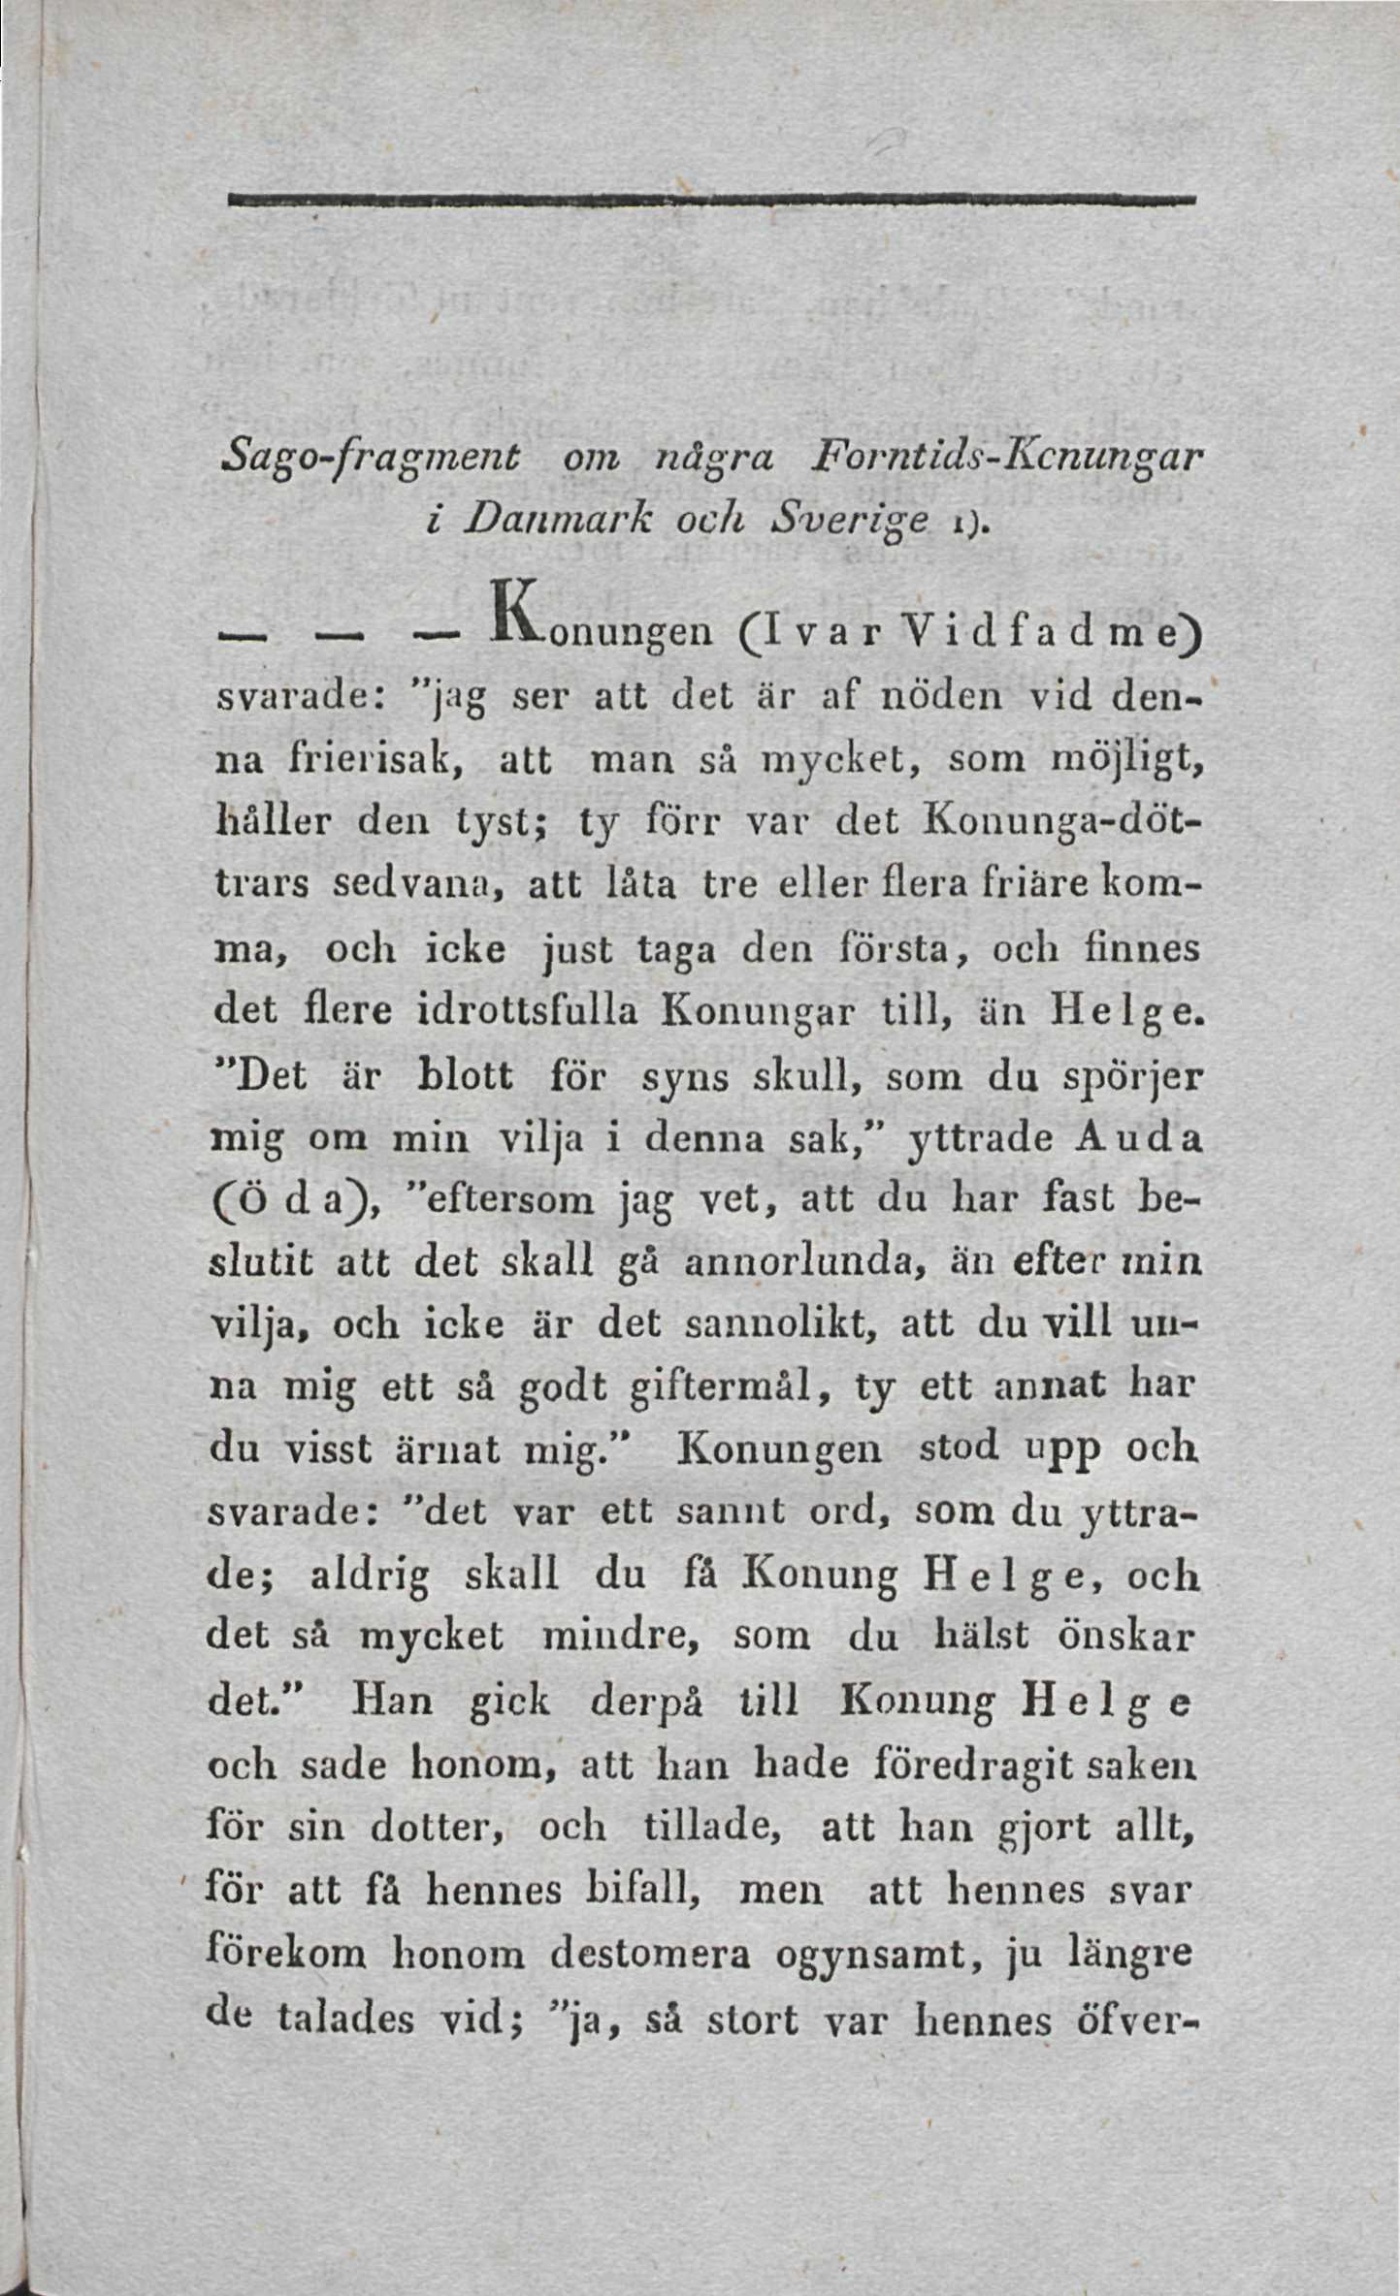 Sago-fragment om några Forntids-Kcnungar
i Danmark och Sverige 1).
— — — Konungen (Ivar Vidfadme)
svarade: ”jag ser att det är af nöden vid den-
na frierisak, att man så mycket, som möjligt,
håller den tyst; ty förr var det Konunga-döt-
trars sedvana, att låta tre eller flera friäre kom-
ma, och icke just taga den första, och finnes
det flere idrottsfulla Konungar till, än Helge.
”Det är blott för syns skull, som du spörjer
mig om min vilja i denna sak,” yttrade Auda
(Öda), ”eftersom jag vet, att du har fast be-
slutit att det skall gå annorlunda, än efter min
vilja, och icke är det sannolikt, att du vill un-
na mig ett så godt giftermål, ty ett annat har
du visst ärnat mig.” Konungen stod upp och
svarade: ”det var ett sannt ord, som du yttra-
de; aldrig skall du få Konung Helge, och
det så mycket mindre, som du hälst önskar
det.” Han gick derpå till Konung Helge
och sade honom, att han hade föredragit saken
för sin dotter, och tillade, att han gjort allt,
för att få hennes bifall, men att hennes svar
förekom honom destomera ogynsamt, ju längre
de talades vid; ”ja, så stort var hennes öfver-